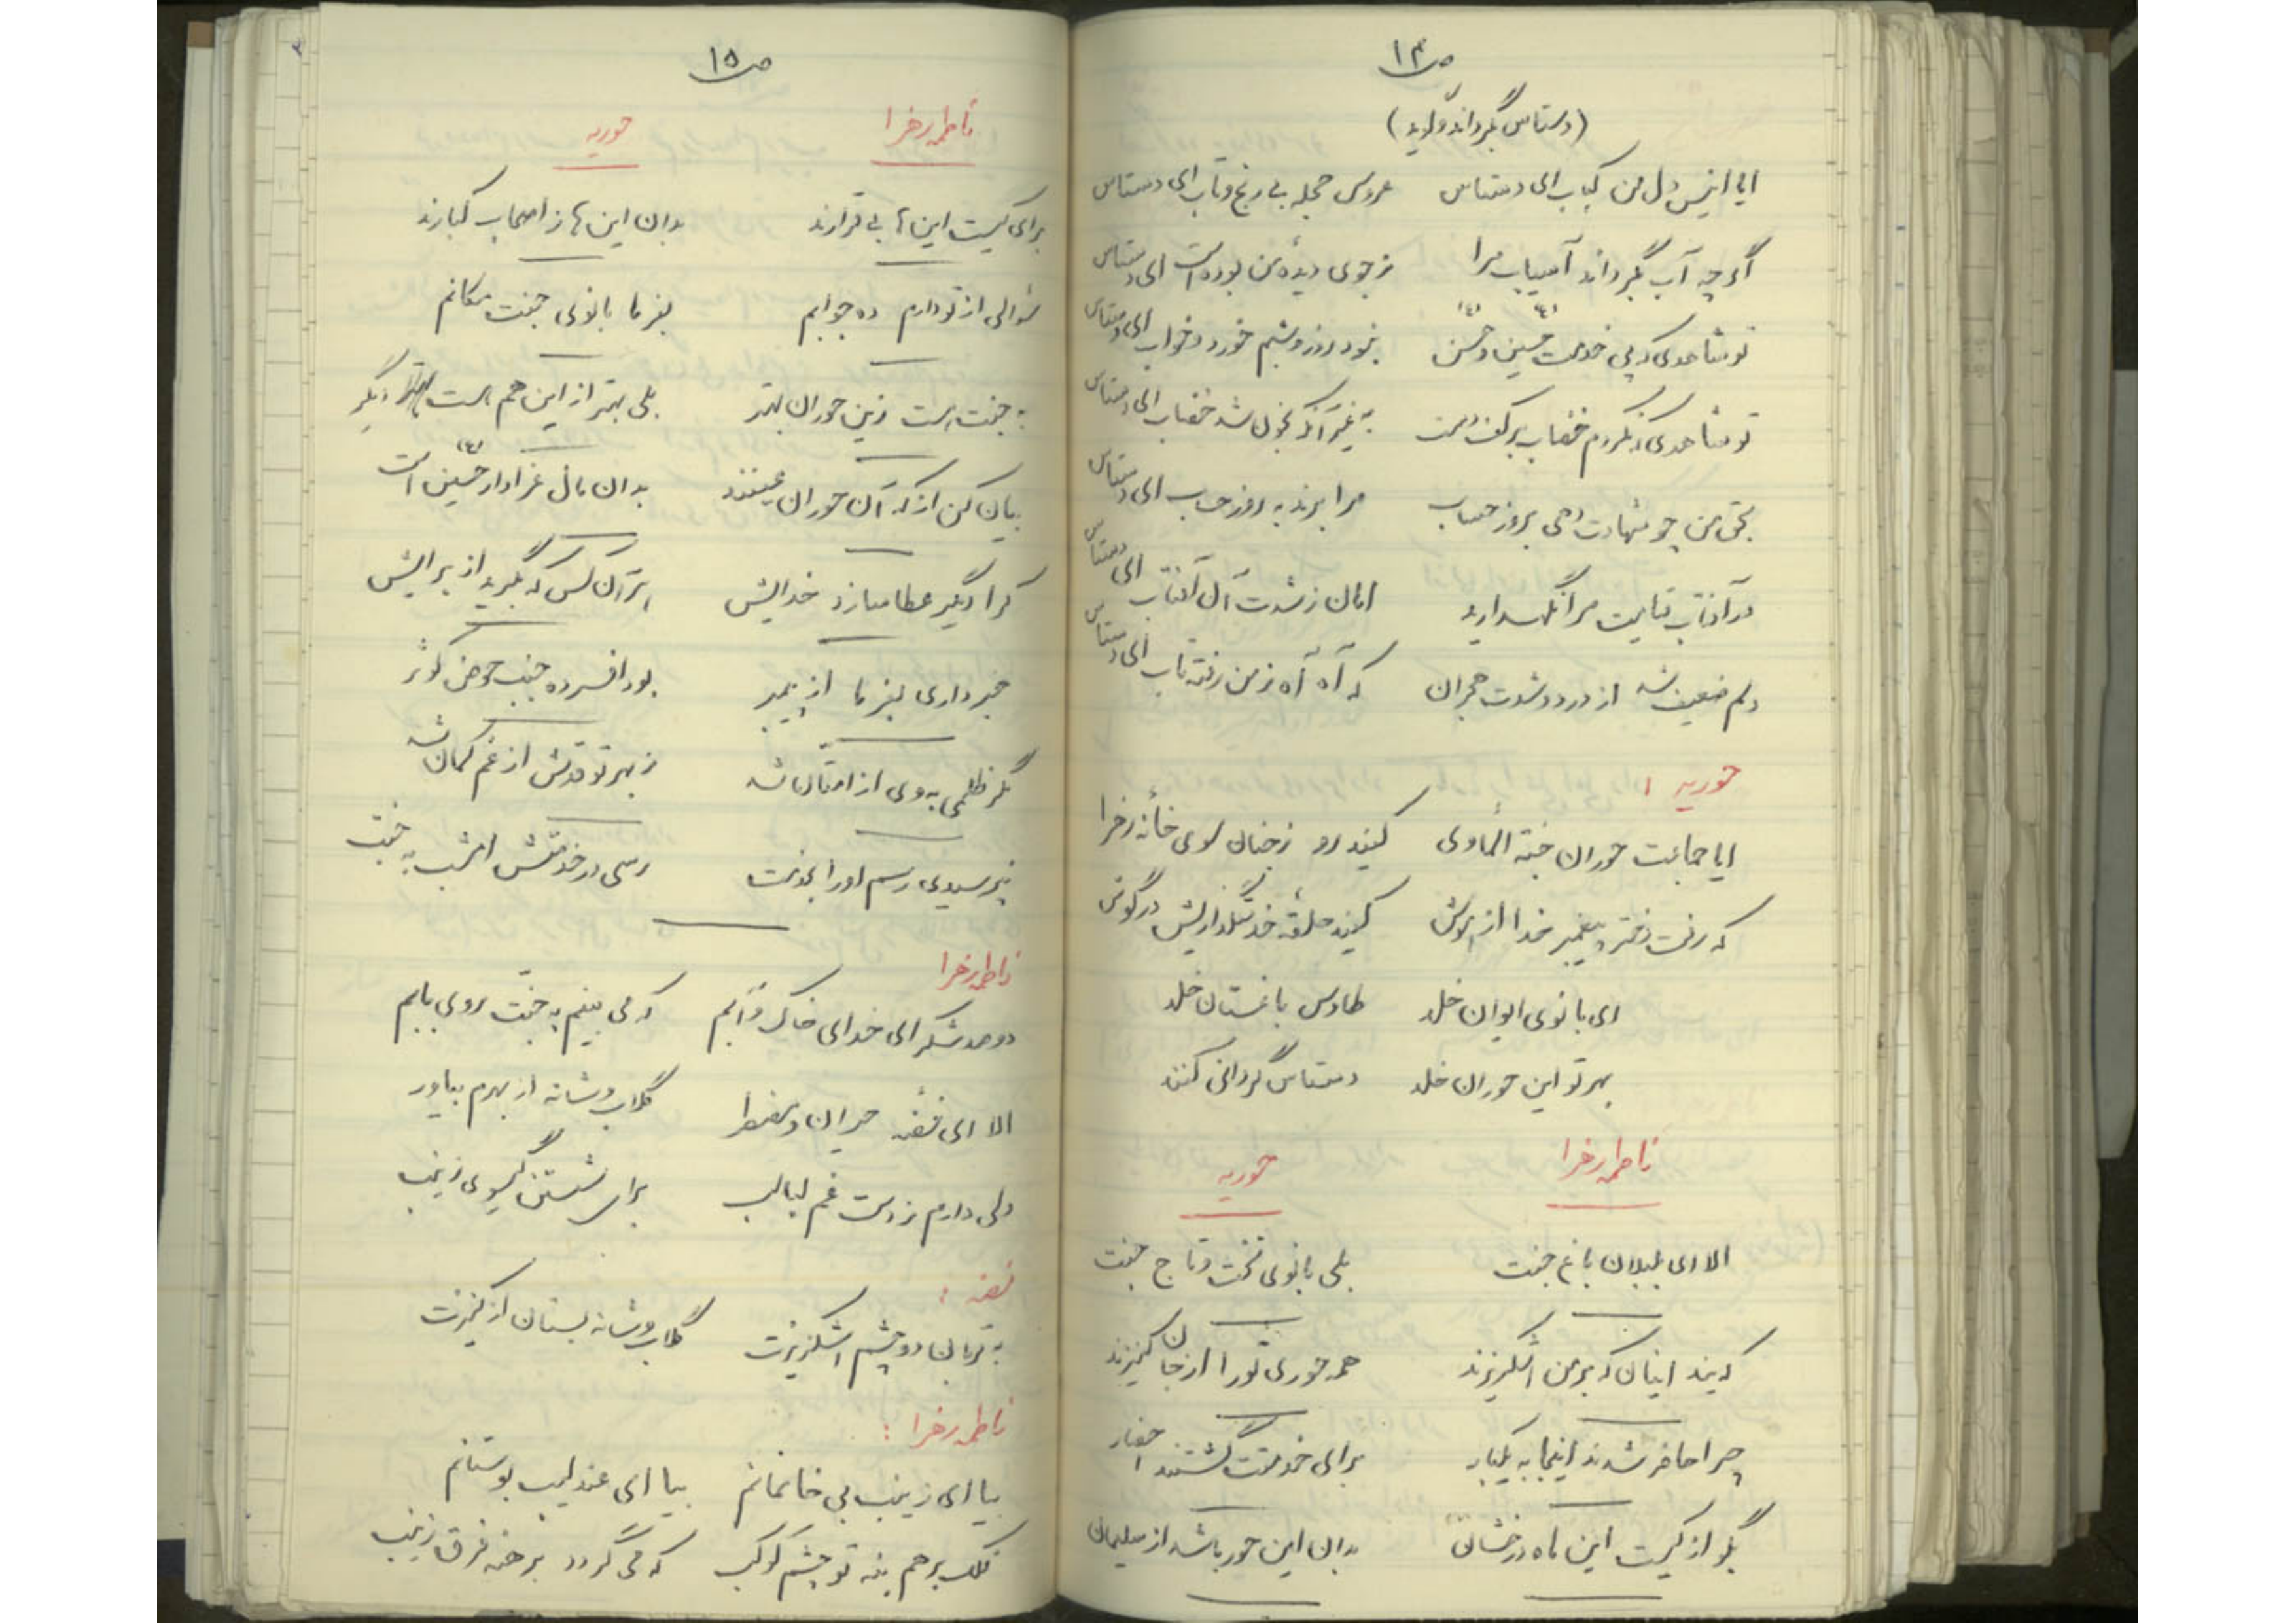 ص ۱۴
(دستاس گرداند و گوید)
ایا انیس دل من کباب ای دستاس عروس حجله بی رنج و تاب ای دستاس
اگر چه آب بگرداند آسیاب مرا ز جوی دیده من بوده است ای دستاس
تو شاهدی که پی خدمت حسین و حسن نبود روز و شبم خورد و خواب ای دستاس
تو شاهدی که نکردم خضاب بر کف دست به غیر آنکه بخون شد خضاب ای دستاس
بحق من چو شهادت دهی بروز حساب مرا برند به روز حساب ای دستاس
در آفتاب قیامت مرا نگهدارید امان ز شدت آن آفتاب ای دستاس
دلم ضعیف شد از درد و شدت هجران که آه آه ز من رفته تاب ای دستاس
حوریه :
ایا جماعت حوران جنة المأوی کنید رو ز جنان سوی خانه زهرا
که رفت دختر پیغمبر خدا از هوش کنید حلقه خدمتگذاریش در گوش
ای بانوی ایوان خلد طاوس باغستان خلد
بهر تو این حوران خلد دستاس گردانی کنند
فاطمه زهرا حوریه
الا ای بلبلان باغ جنت بلی بانوی تخت و تاج جنت
که‌یند اینان که بر من اشکریزند همه حوری تو را از جان کنیزند
چرا حاضر شدند اینجا به یکبار برای خدمتت گشتند احضار
بگو از کیست این ماه درخشان بدان این حور باشد از سلیمان
ص ۱۵
فاطمه زهرا حوریه
برای کیست این‌ها بی قرارند بدان این‌ها ز اصحاب کبارند
سؤالی از تو دارم ده جوابم بفرما بانوی جنت مکانم
به جنت هست زین حوران بهتر بلی بهتر از این هم هست دیگر
بیان کن از که آن حوران عینند بدان مال عزادار حسین است
کرا دیگر عطا سازد خدایش بر آن کس که بگرید از برایش
خبر داری بفرما از پیمبر بود افسرده جنب حوض کوثر
مگر ظلمی به وی از امتان شد ز بهر تو قدش از غم کمان شد
نپرسیدی رسم او را بخدمت رسی در خدمتش امشب به جنت
فاطمه زهرا
دو صد شکر ای خدای خاک و آبم که می بینم به جنت روی بابم
الا ای فضه حیران و مضطر گلاب و شانه از بهرم بیاور
دلی دارم ز دست غم لبالب برای شستن گیسوی زینب
فضه :
به قربان دو چشم اشکریزت گلاب و شانه بستان از کنیزت
فاطمه زهرا :
بیا ای زینب بی خانمانم بیا ای عندلیب بوستانم
فلک بر هم بنه تو چشم کوکب که می گردد برهنه فرق زینب